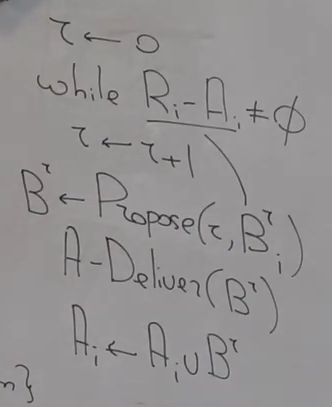 τ ← 0
while R_i - A_i ≠ ∅
τ ← τ+1
B^τ ← Propose(τ, B_i^τ)
A-Deliver(B^τ)
A_i ← A_i ∪ B^τ
n}